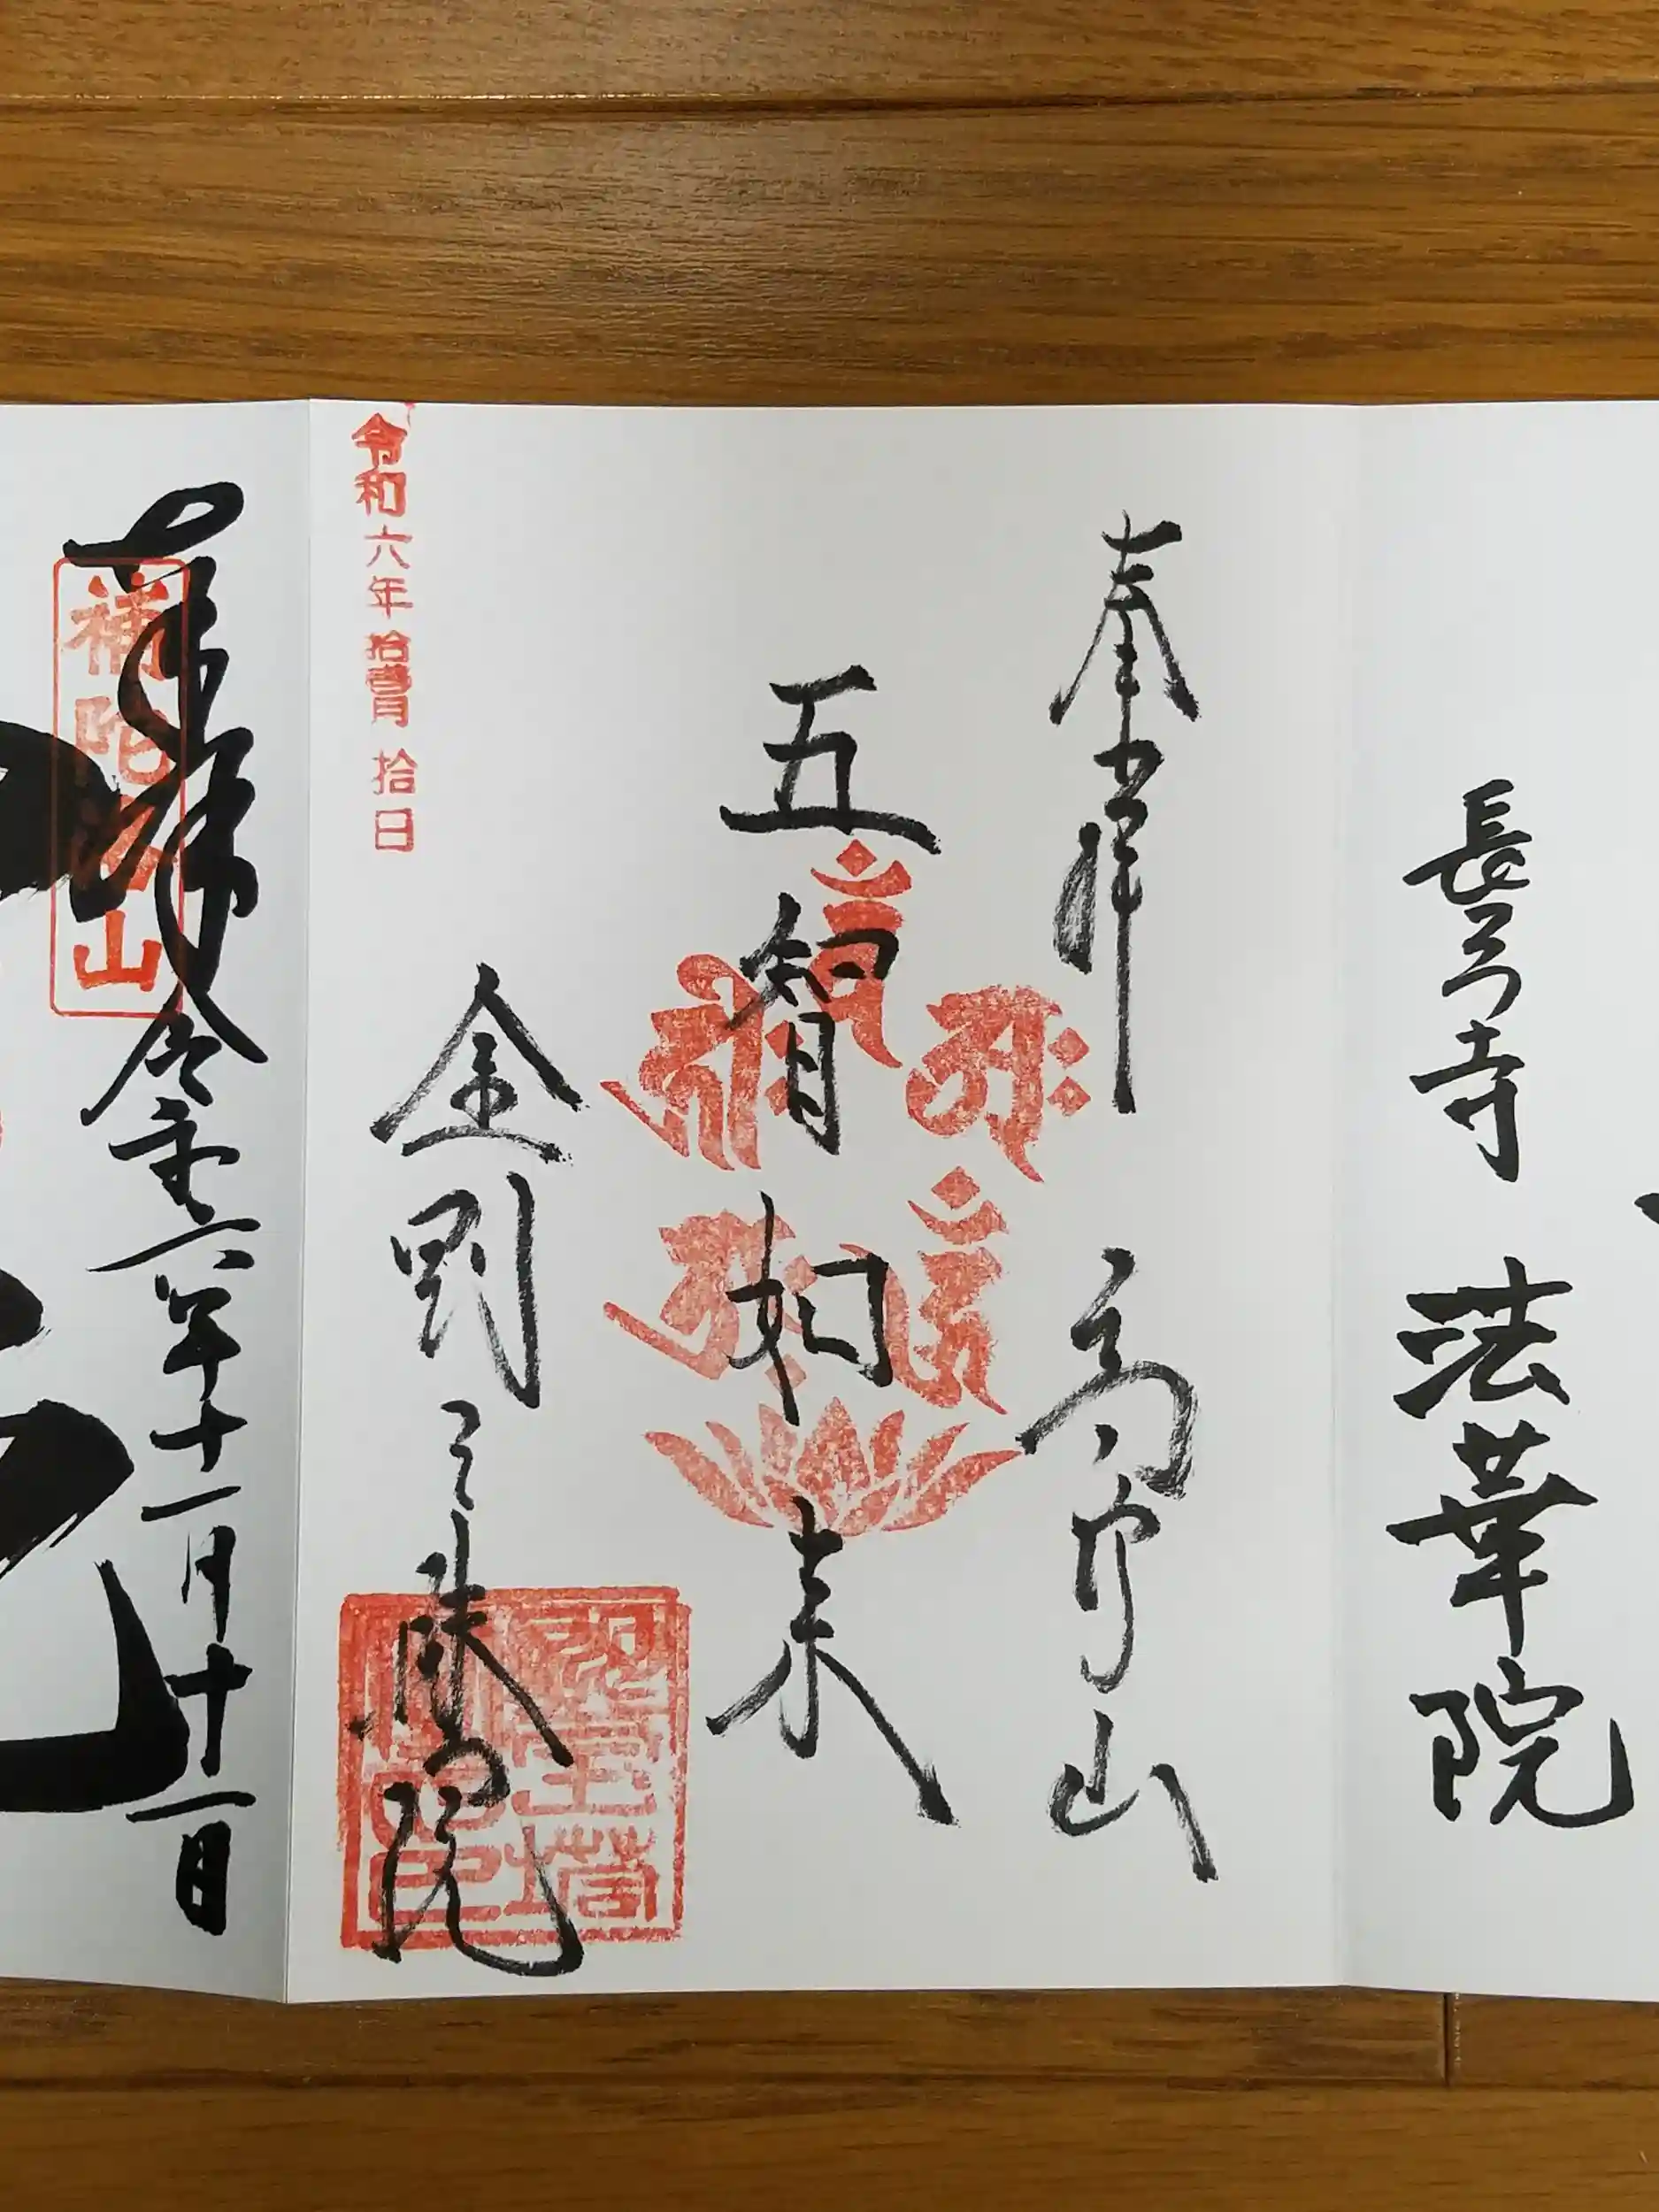 長弓寺 法華院
奉拝 高野山
五智如来
金剛三昧院
令和六年拾壱月拾日
奉拝 令和六年十一月十一日
補陀洛山